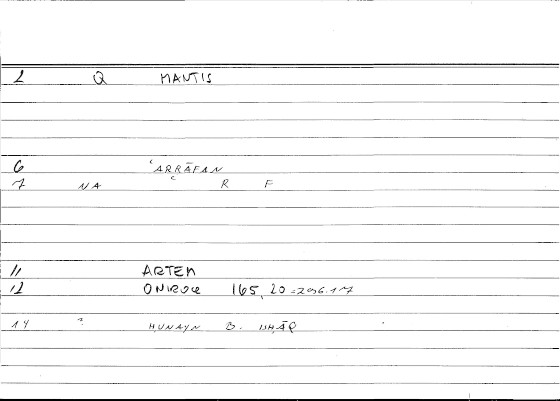 1 Q MANTIS
6 ʿARRĀFAN
7 NA ʿ R F
11 ARTEM
12 ONIROCR 165, 20 = 296.17
14 ? ḤUNAYN B. ISḤĀQ